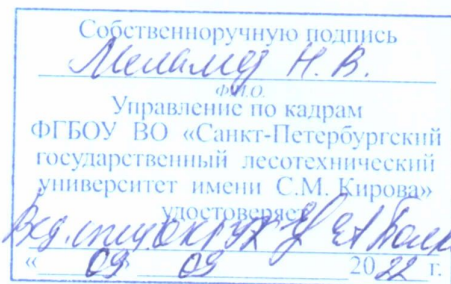 Собственноручную подпись
Меламед Н. В.
Ф.И.О.
Управление по кадрам
ФГБОУ ВО «Санкт-Петербургский
государственный лесотехнический
университет имени С.М. Кирова»
удостоверяет
« 09 » 09 2022 г.